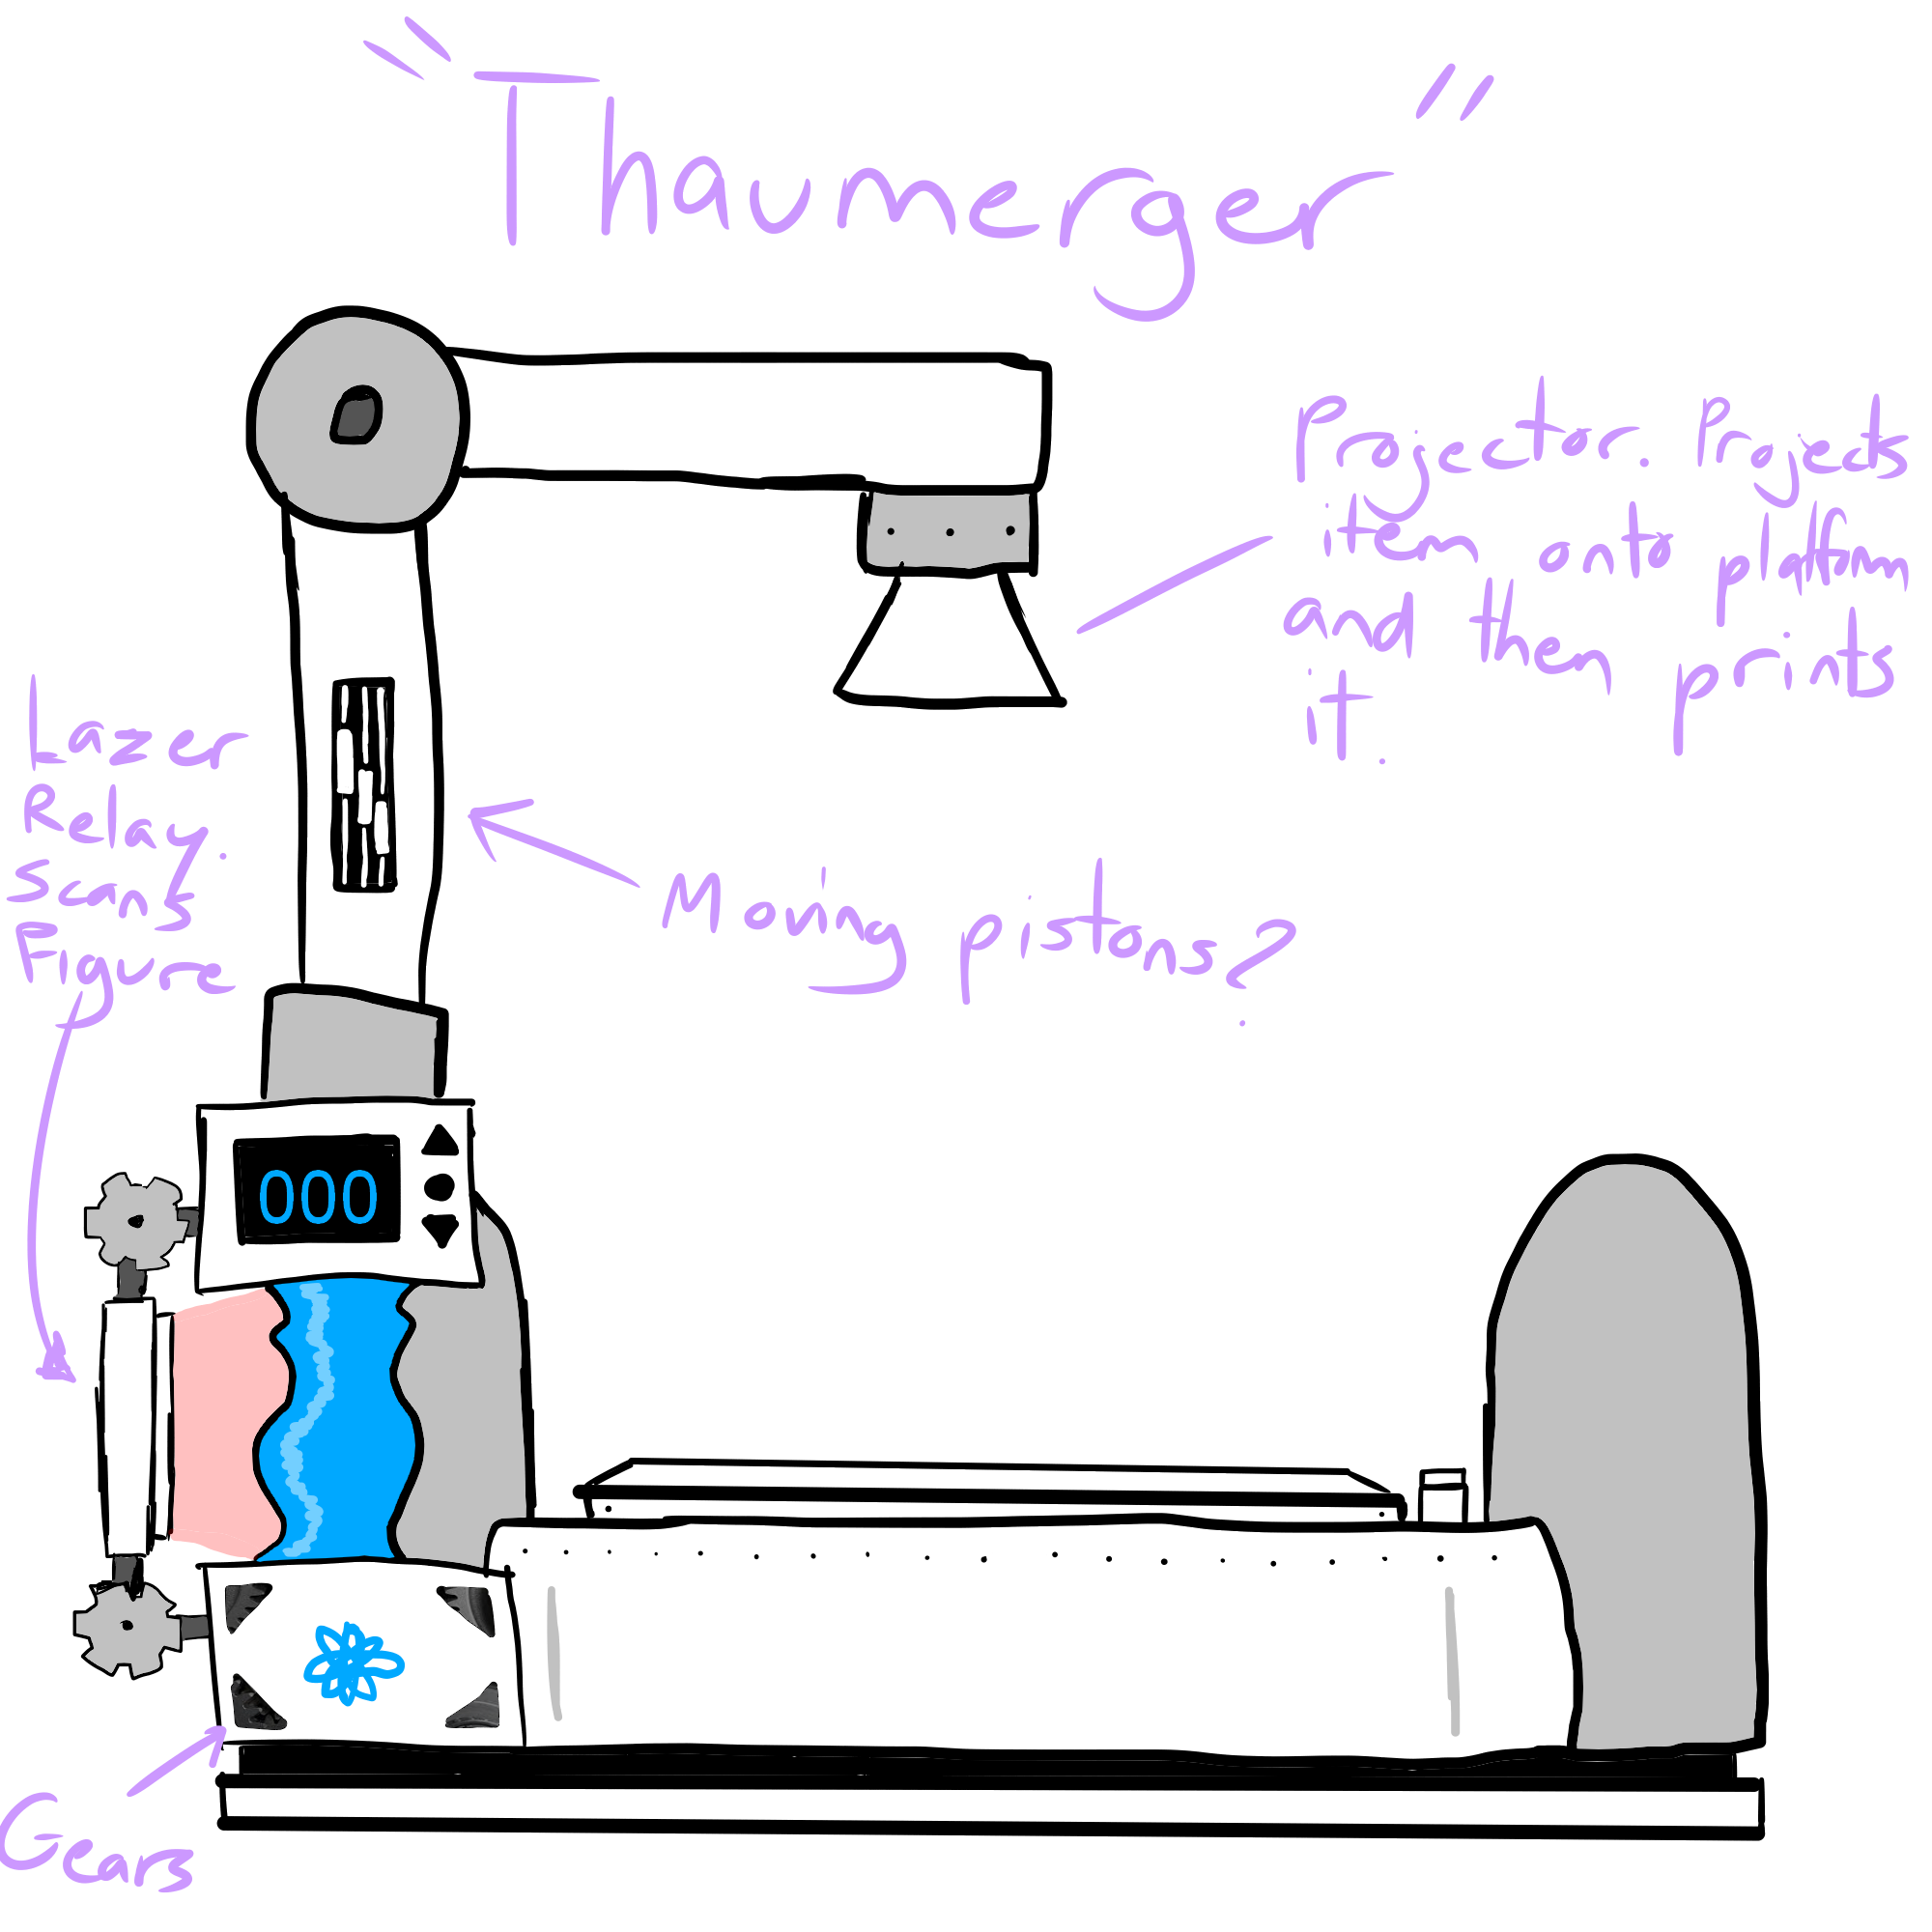 "Thaumerger"
Projector. Projects
item onto platform
and then prints
it.
Lazer
Relay.
Scans
Figure
Moving pistons?
000
Gears